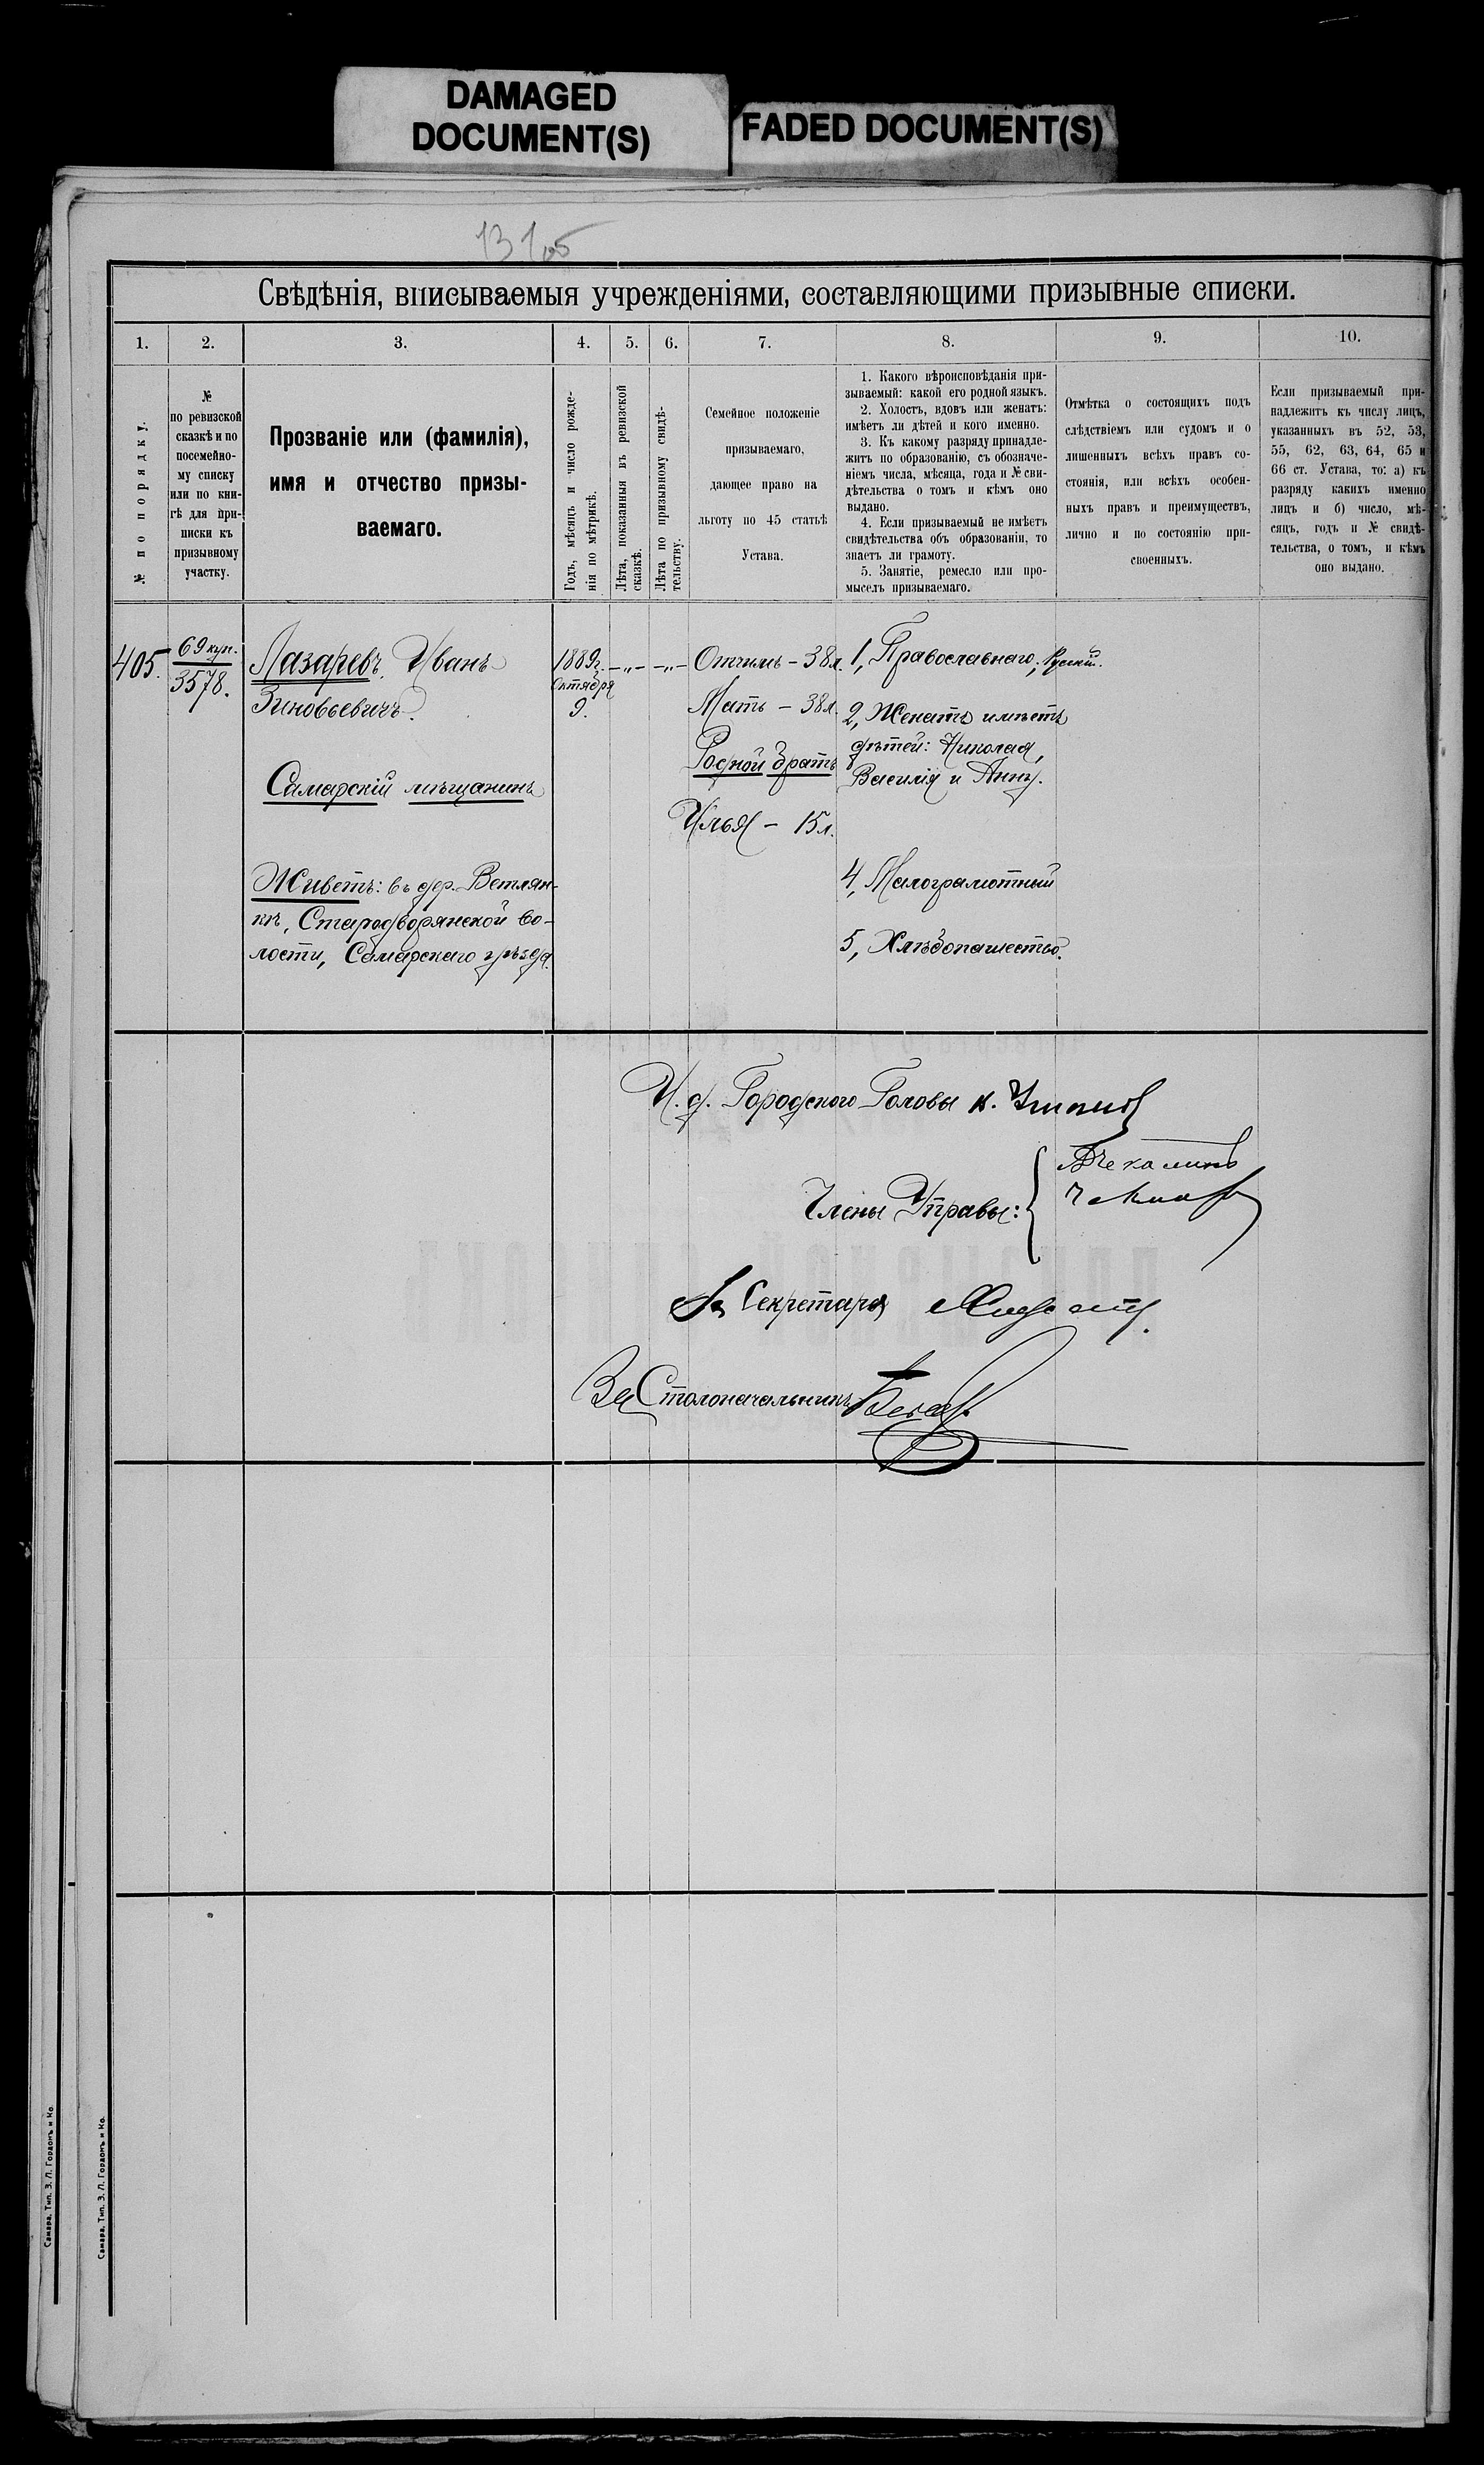 DAMAGED
DOCUMENT(S)
FADED DOCUMENT(S)
Свѣдѣнія, вписываемыя учрежденіями, составляющими призывные списки.
1.
2.
3.
4.
5.
6.
7.
8.
9.
10.
№ по порядку.
№
по ревизской
сказкѣ и по
посемейно-
му списку
или по кни-
гѣ для при-
писки къ
призывному
участку.
Прозваніе или (фамилія),
имя и отчество призы-
ваемаго.
Годъ, мѣсяцъ и число рожде-
нія по мѣтрикѣ.
Лѣта, показанныя въ ревизской
сказкѣ.
Лѣта по призывному свидѣ-
тельству.
Семейное положеніе
призываемаго,
дающее право на
льготу по 45 статьѣ
Устава.
1. Какого вѣроисповѣданія при-
зываемый: какой его родной языкъ.
2. Холостъ, вдовъ или женатъ:
имѣетъ ли дѣтей и кого именно.
3. Къ какому разряду принадле-
житъ по образованію, съ обозначе-
ніемъ числа, мѣсяца, года и № сви-
дѣтельства о томъ и кѣмъ оно
выдано.
4. Если призываемый не имѣетъ
свидѣтельства объ образованіи, то
знаетъ ли грамоту.
5. Занятіе, ремесло или про-
мыселъ призываемаго.
Отмѣтка о состоящихъ подъ
слѣдствіемъ или судомъ и о
лишенныхъ всѣхъ правъ со-
стоянія, или всѣхъ особен-
ныхъ правъ и преимуществъ,
лично и по состоянію при-
своенныхъ.
Если призываемый при-
надлежитъ къ числу лицъ,
указанныхъ въ 52, 53,
55, 62, 63, 64, 65 и
66 ст. Устава, то: а) къ
разряду какихъ именно
лицъ и б) число, мѣ-
сяцъ, годъ и № свидѣ-
тельства, о томъ, и кѣмъ
оно выдано.
405.
69 куп.
3578.
Лазаревъ, Иванъ
Зиновьевичъ.
Самарскій мѣщанинъ
Живетъ: въ дер. Ветлян-
кѣ, Стародворянской во-
лости, Самарскаго уѣзда.
1889г.
Октября
9.
-„-
-„-
Отчимъ - 38л.
Мать - 38л.
Родной братъ
Илья - 15л.
1, Православнаго, Русскій.
2, Женатъ имѣетъ
дѣтей: Николая,
Василія и Анну.
4, Малограмотный
5, Хлѣбопашество.
И. д. Городского Головы
Члены Управы:
За Секретаря
За Столоначальникъ
Самара, Тип. З. Л. Гордонъ и Ко.
Самара, Тип. З. Л. Гордонъ и Ко.